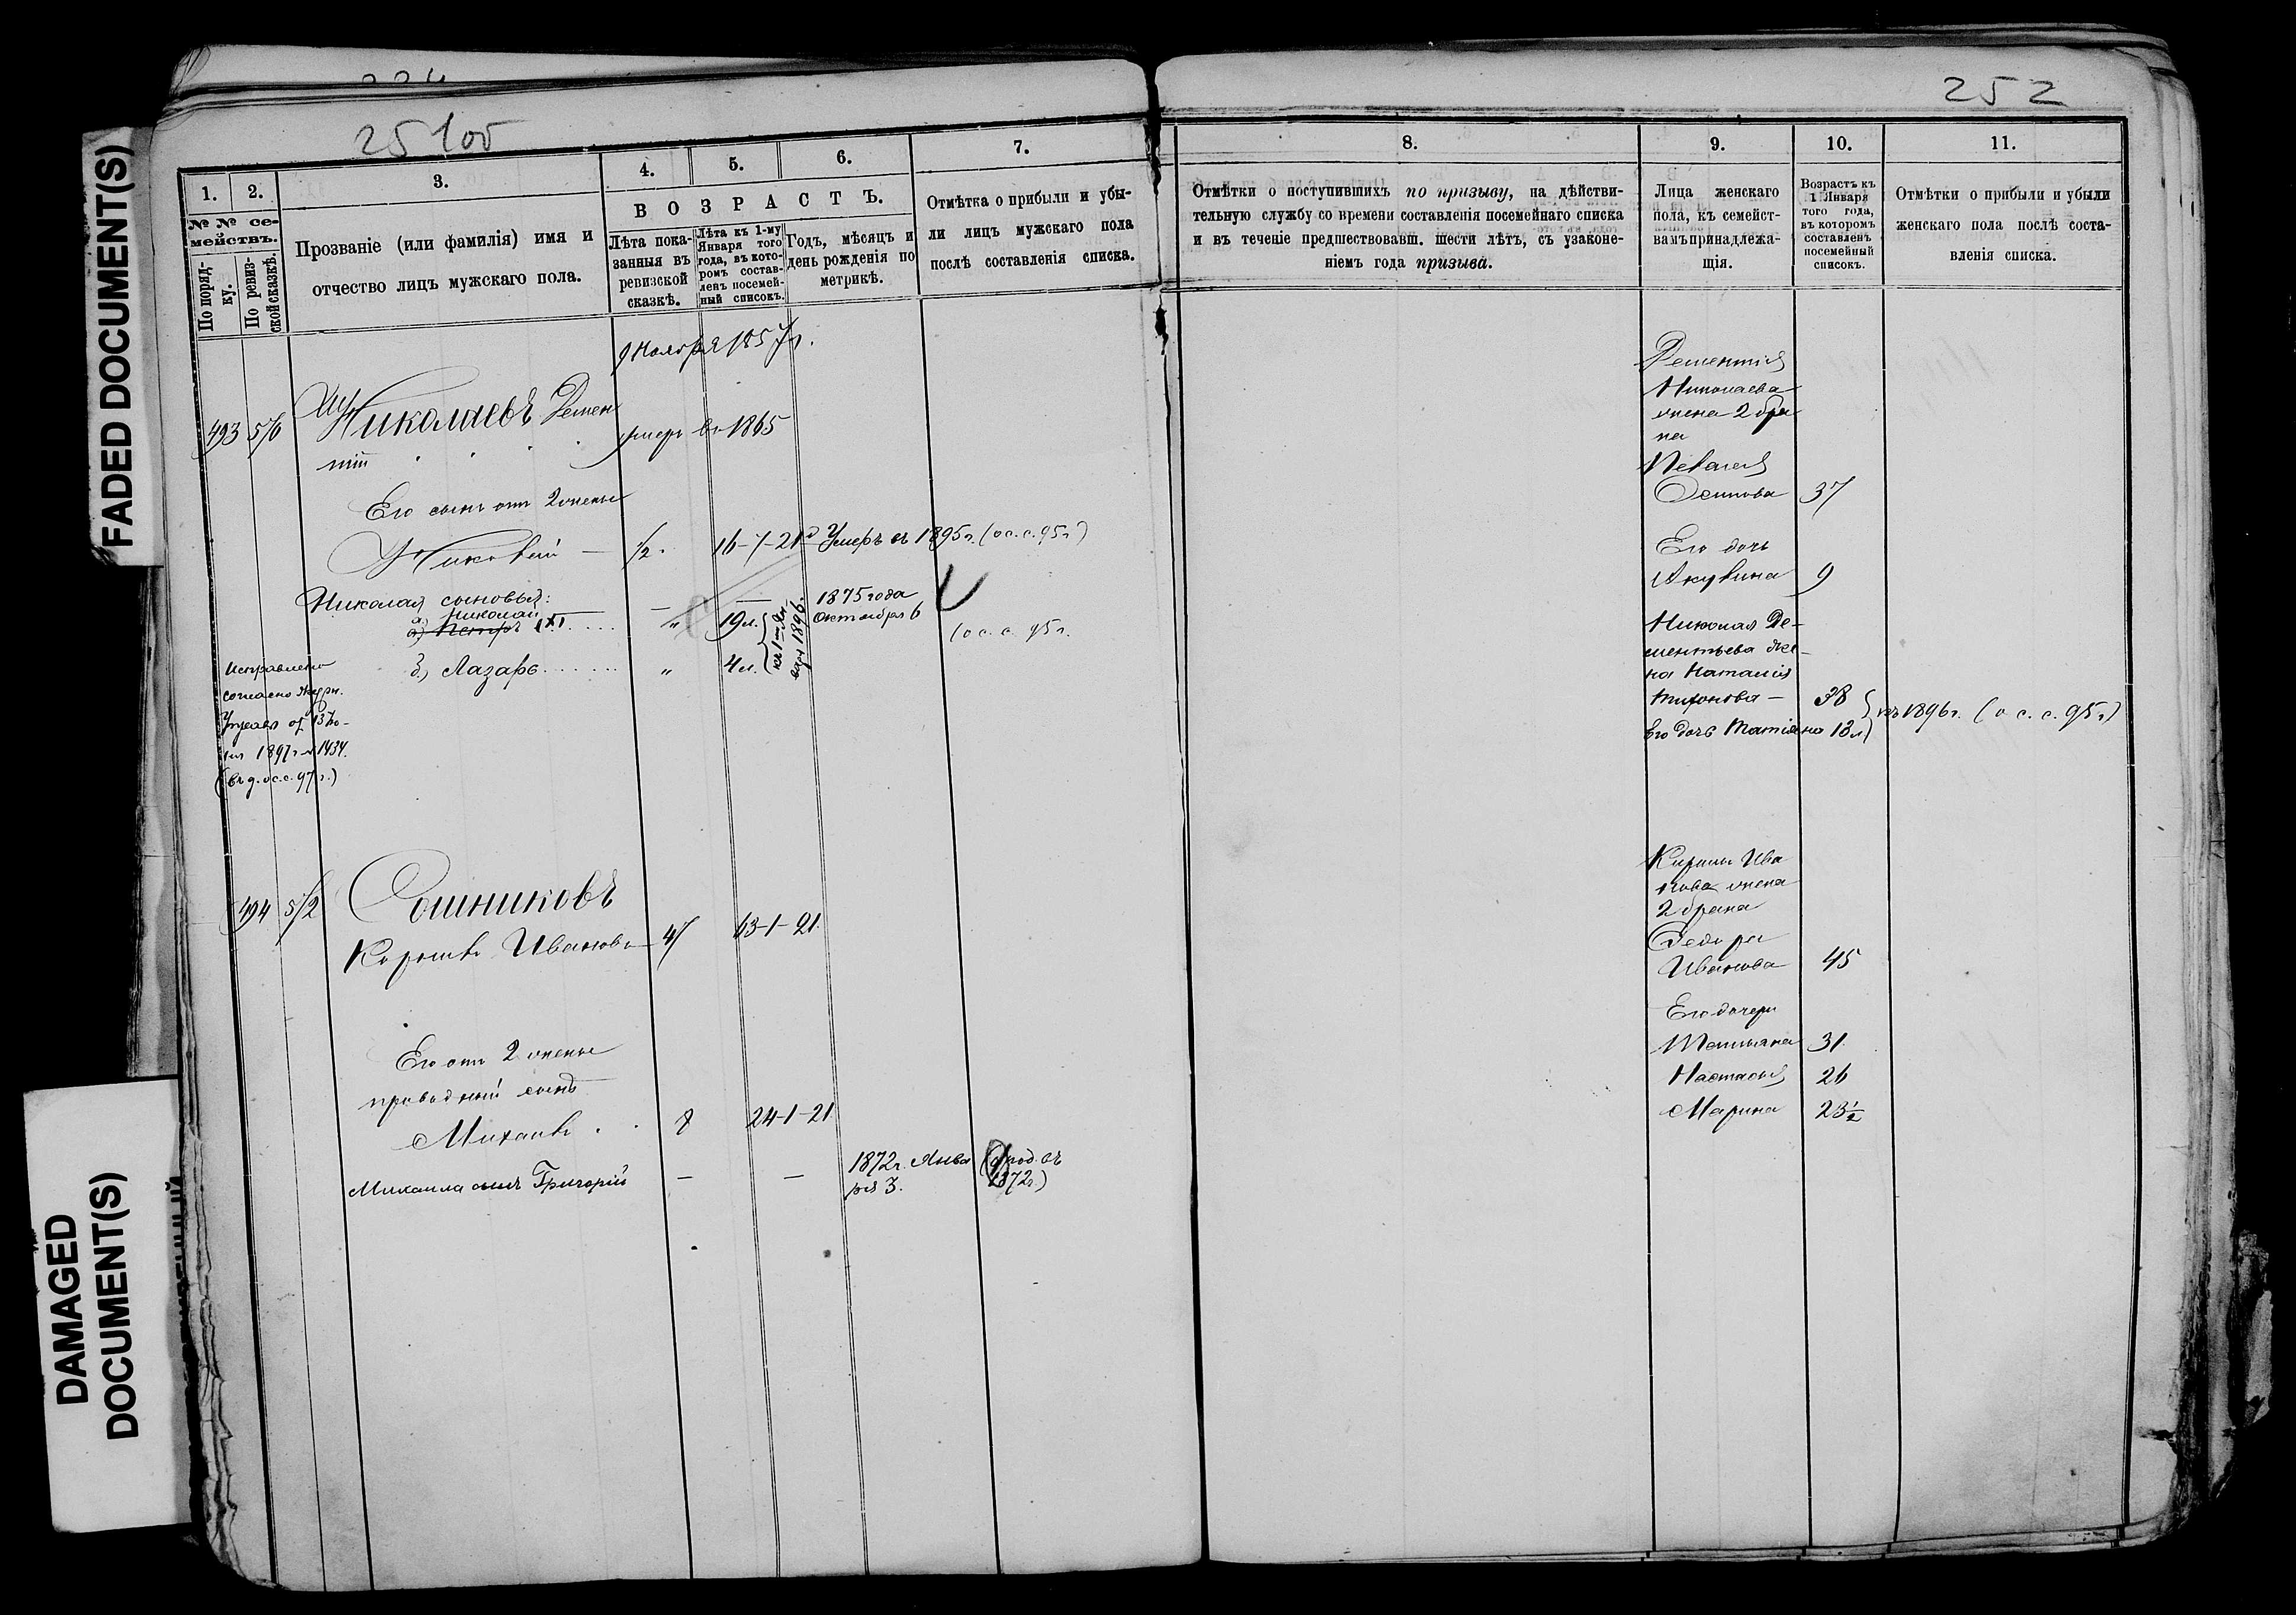 252
25 100
FADED DOCUMENT(S)
DAMAGED
DOCUMENT(S)
1.
2.
3.
4.
5.
6.
7.
№ № се-
мействъ.
По поряд-
ку.
По ревиз-
ской сказкѣ.
Прозваніе (или фамилія) имя и
отчество лицъ мужскаго пола.
ВОЗРАСТЪ.
Лѣта пока-
занныя въ
ревизской
сказкѣ.
Лѣта къ 1-му
Января того
года, въ кото-
ромъ состав-
ленъ посемей-
ный списокъ.
Годъ, мѣсяцъ и
день рожденія по
метрикѣ.
Отмѣтка о прибыли и убы-
ли лицъ мужскаго пола
послѣ составленія списка.
9 Ноября 1857 г.
493
Николаевъ Демен
тій
умеръ въ 1865
Его сынъ отъ 2 жены
Николай — 1/2. 16-7-21 Умеръ въ 1895 г. (о с. с. 95 г.)
Николая сыновья:
Николай
а) Петръ
„ 19 л.
къ 1 Ян-
варя 1896.
1875 года
Октября 6
(о с. с. 95 г.
б) Лазарь
„ 4 л.
Исправлено
согласно
1897 г. № 1434.
с. с. 97 г.)
494 5/2
Сошниковъ
Иванова 47 63-1-21
Его отъ 2 жены
приводный сынъ
Михаилъ 24-1-21
Михаила сынъ Григорій — — 1872 г. Янва
ря 3.
(род. въ
1872 г.)
8.
9.
10.
11.
Отмѣтки о поступившихъ по призыву, на дѣйстви-
тельную службу со времени составленія посемейнаго списка
и въ теченіе предшествовавш. шести лѣтъ, съ узаконе-
ніемъ года призыва.
Лица женскаго
пола, къ семейст-
вамъ принадлежа-
щія.
Возрастъ къ
1 Января
того года,
въ которомъ
составленъ
посемейный
списокъ.
Отмѣтки о прибыли и убыли
женскаго пола послѣ соста-
вленія списка.
Дементія
Николаева
жена 2 бра
ка
Пелагея
Осипова 37
Его дочь
Акулина 9
Николая Де-
ментьева же-
на Наталія
Тихонова — 38
Его дочь Татіяна 13 л.
къ 1896 г. (о с. с. 95 г.)
Кирилы Ива
нова жена
2 брака
Ѳедора
Иванова 45
Его дочери
Татьяна 31
Настасья 26
Марина 23½